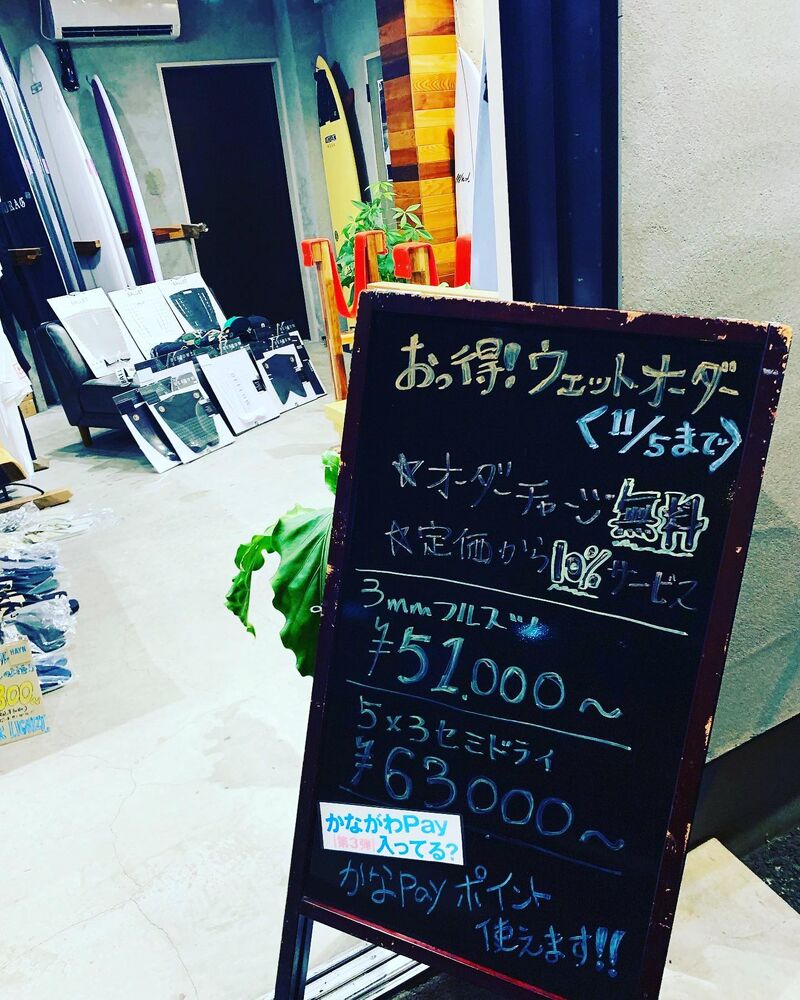 おっ得!ウェットオーダー
〈11/5まで〉
☆オーダーチャージ無料
☆定価から10%サービス
3mmフルスーツ
¥51.000〜
5×3セミドライ
¥63000〜
かながわPay
第3弾 入ってる?
かなPayポイント
使えます!!
HAYN